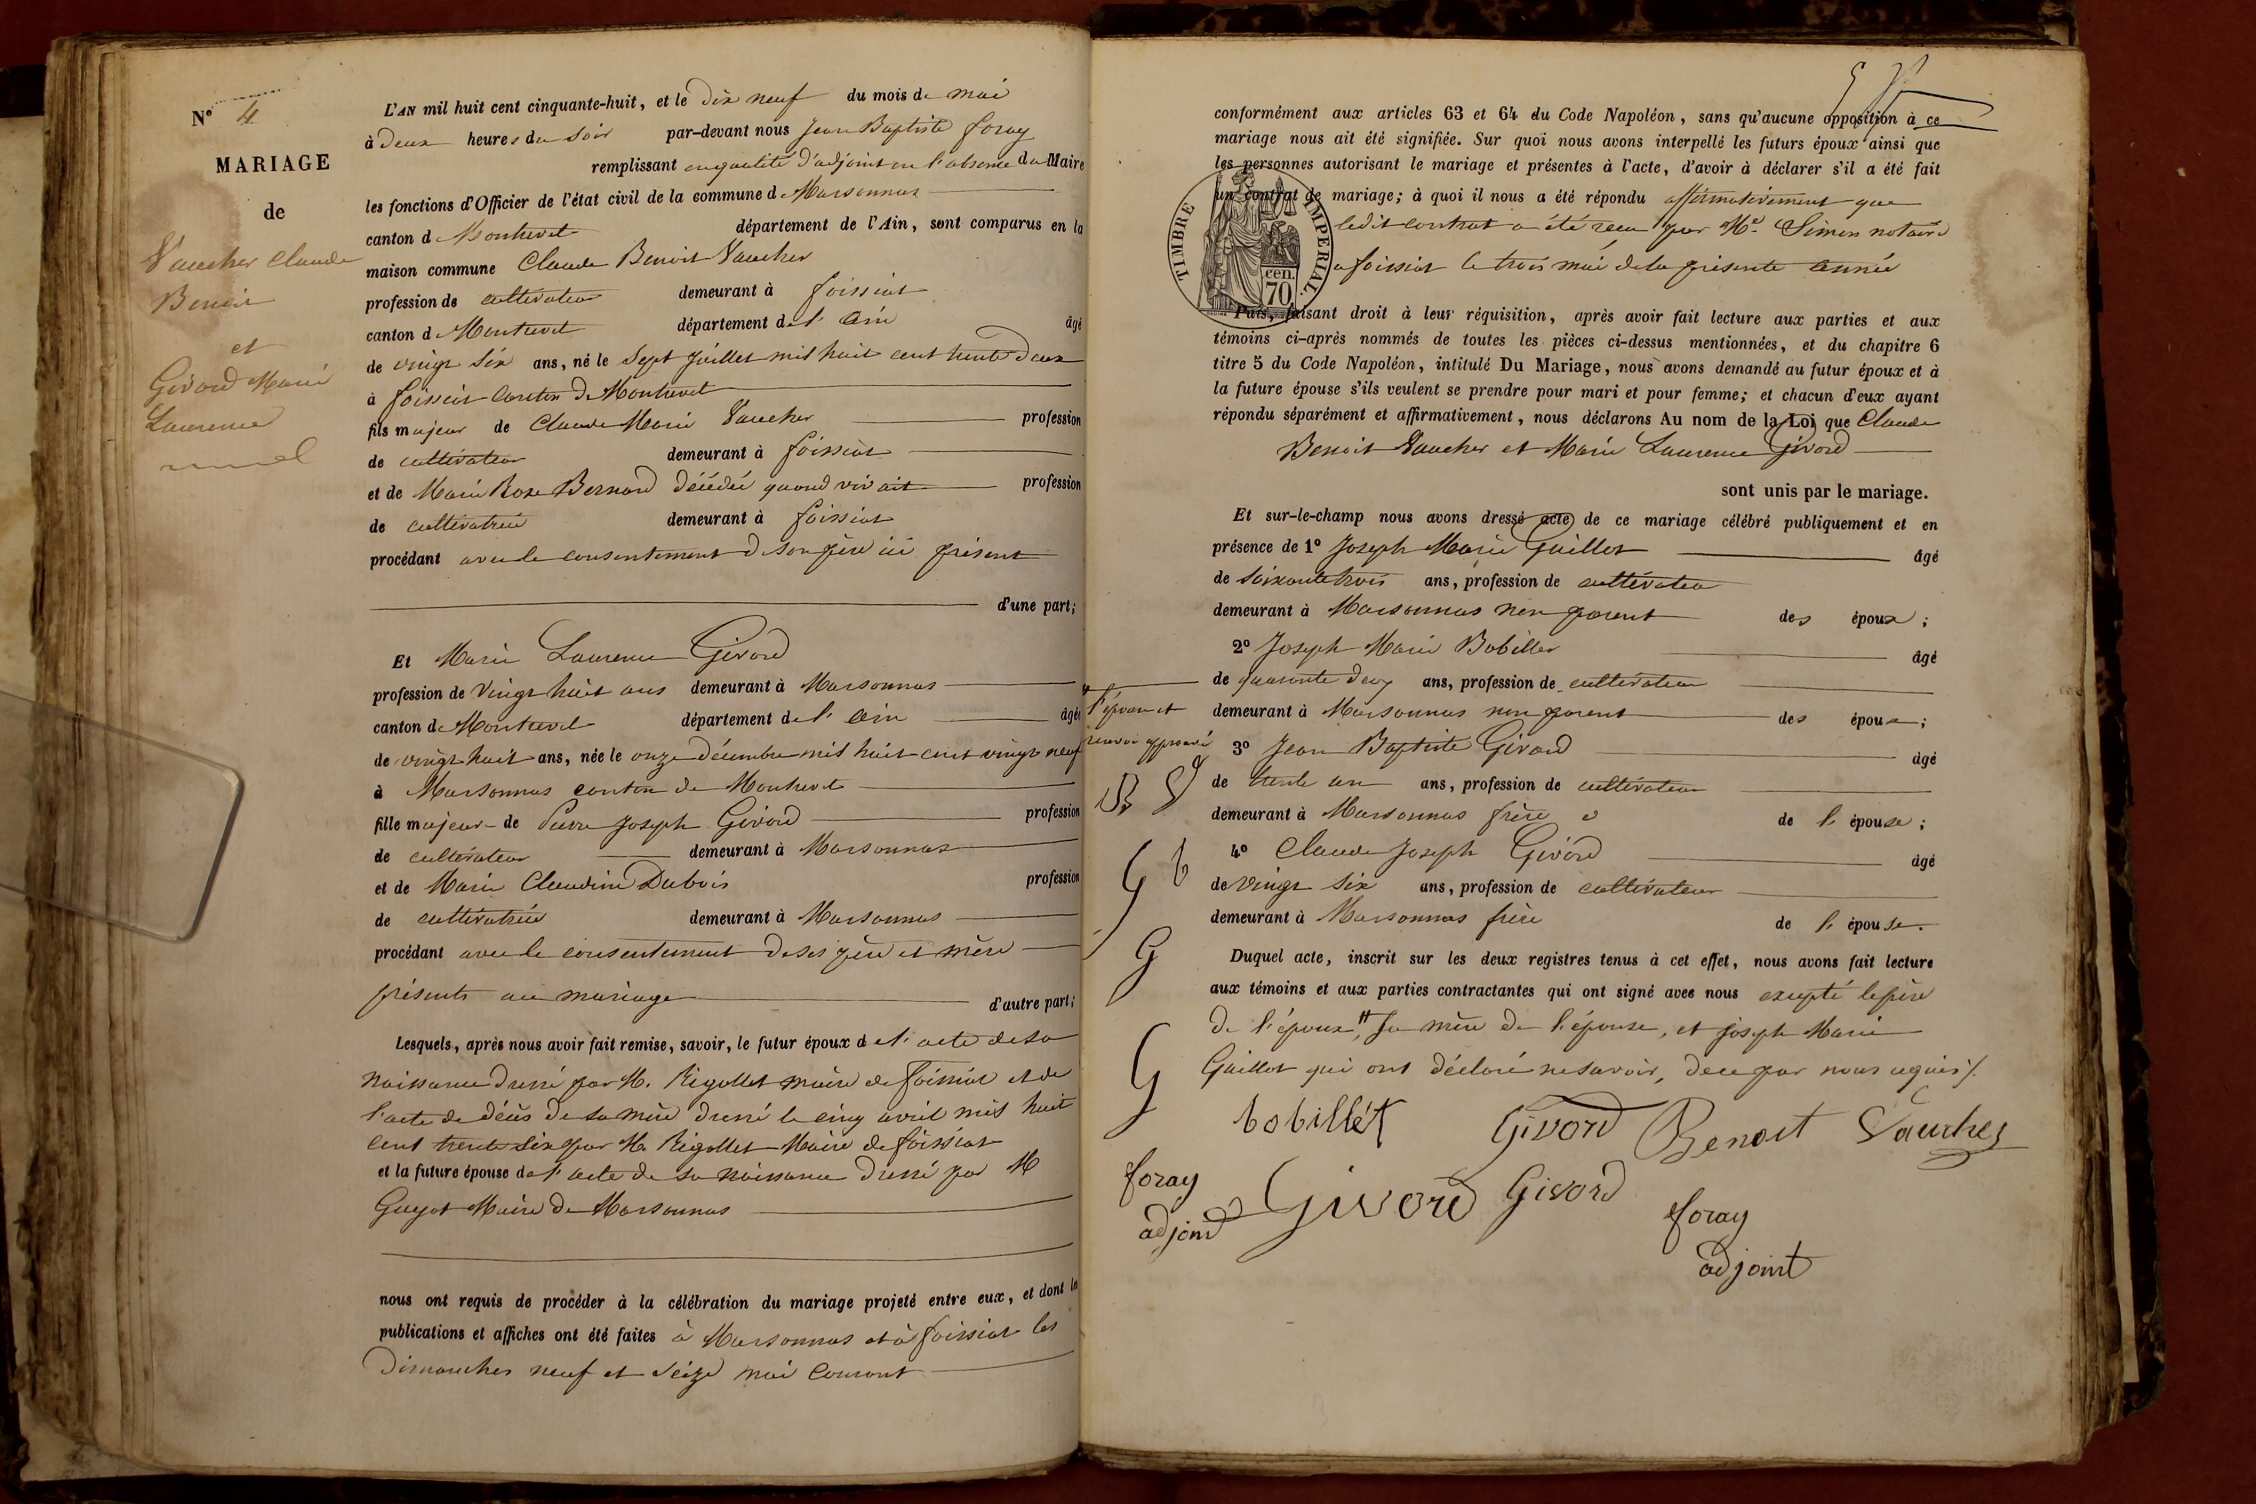 N° 4
MARIAGE
de
Vaucher Claude
Benoit
et
Givord Marie
Laurence
L'AN mil huit cent cinquante-huit, et le dix neuf du mois de mai
à deux heures du soir par-devant nous Jean Baptiste foray
remplissant en qualité d'adjoint en l'absence du Maire
les fonctions d'Officier de l'état civil de la commune de Marsonnas
canton d Montrevel département de l'Ain, sont comparus en la
maison commune Claude Benoit Vaucher
profession de cultivateur demeurant à foissiat
canton d Montrevel département de l' Ain âgé
de vingt six ans, né le sept juillet mil huit cent trente deux
à foissiat canton de Montrevel
fils majeur de Claude Marie Vaucher profession
de cultivateur demeurant à foissiat
et de Marie Rose Bernard décédée quand vivait profession
de cultivatrice demeurant à foissiat
procédant avec le consentement de son père ici présent
d'une part;
Et Marie Laurence Givord
profession de vingt huit ans demeurant à Marsonnas
canton de Montrevel département de l' Ain âgée
de vingt huit ans, née le onze décembre mil huit cent vingt neuf
à Marsonnas canton de Montrevel
fille majeure de Pierre Joseph Givord profession
de cultivateur demeurant à Marsonnas
et de Marie Claudine Dubois profession
de cultivatrice demeurant à Marsonnas
procédant avec le consentement de ses père et mère
présents au mariage d'autre part;
Lesquels, après nous avoir fait remise, savoir, le futur époux de l'acte de sa
naissance dressé par M. Rigollet maire de foissiat et de
l'acte de décès de sa mère dressé le cinq avril mil huit
cent trente six par M. Rigollet Maire de foissiat
et la future épouse de l'acte de sa naissance dressé par M
Guyot Maire de Marsonnas
nous ont requis de procéder à la célébration du mariage projeté entre eux, et dont les
publications et affiches ont été faites à Marsonnas et à foissiat les
dimanches neuf et seize mai courant
conformément aux articles 63 et 64 du Code Napoléon, sans qu'aucune opposition à ce
mariage nous ait été signifiée. Sur quoi nous avons interpellé les futurs époux ainsi que
les personnes autorisant le mariage et présentes à l'acte, d'avoir à déclarer s'il a été fait
un contrat de mariage; à quoi il nous a été répondu affirmativement que
ledit contrat a été reçu par Me. Simon notaire
a foissiat le trois mai de la présente année
TIMBRE IMPERIAL
70 cen.
Puis, faisant droit à leur réquisition, après avoir fait lecture aux parties et aux
témoins ci-après nommés de toutes les pièces ci-dessus mentionnées, et du chapitre 6
titre 5 du Code Napoléon, intitulé Du Mariage, nous avons demandé au futur époux et à
la future épouse s'ils veulent se prendre pour mari et pour femme; et chacun d'eux ayant
répondu séparément et affirmativement, nous déclarons Au nom de la Loi que Claude
Benoit Vaucher et Marie Laurence Givord
sont unis par le mariage.
Et sur-le-champ nous avons dressé acte de ce mariage célébré publiquement et en
présence de 1° Joseph Marie Guillot âgé
de soixante trois ans, profession de cultivateur
demeurant à Marsonnas non parent des époux;
2° Joseph Marie Bobillet âgé
de quarante deux ans, profession de cultivateur
demeurant à Marsonnas non parent des époux;
3° Jean Baptiste Givord âgé
de trente un ans, profession de cultivateur
demeurant à Marsonnas frère de l'épouse;
4° Claude Joseph Givord âgé
de vingt six ans, profession de cultivateur
demeurant à Marsonnas frère de l'épouse.
Duquel acte, inscrit sur les deux registres tenus à cet effet, nous avons fait lecture
aux témoins et aux parties contractantes qui ont signé avec nous excepté le père
de l'époux, la mère de l'épouse, et joseph Marie
Guillot qui ont déclaré ne savoir, de ce par nous requis
l'épouse et
renvoi approuvé
B V
G b
G
G
bobillet Givord Benoit Vaucher
foray
adjoint
Givord Givord
foray
adjoint